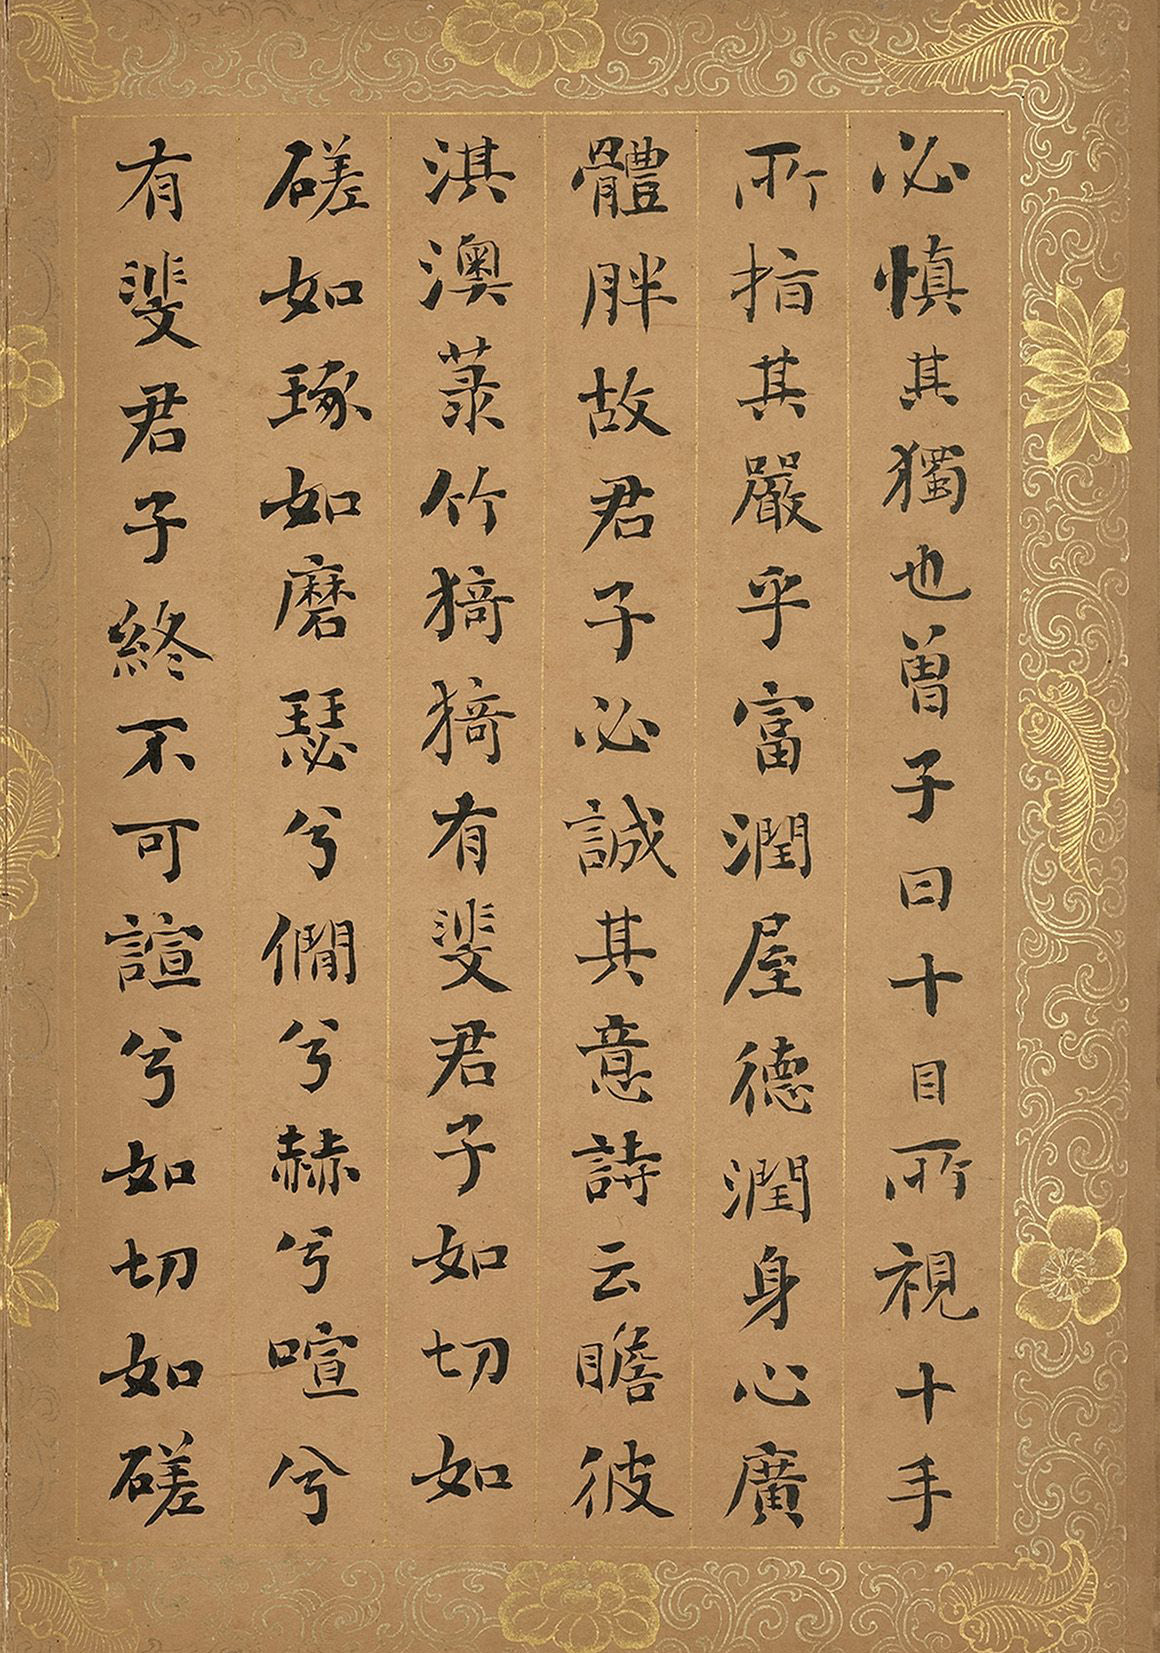 必慎其獨也曾子曰十目所視十手
所指其嚴乎富潤屋德潤身心廣
體胖故君子必誠其意詩云瞻彼
淇澳菉竹猗猗有斐君子如切如
磋如琢如磨瑟兮僩兮赫兮喧兮
有斐君子終不可諠兮如切如磋